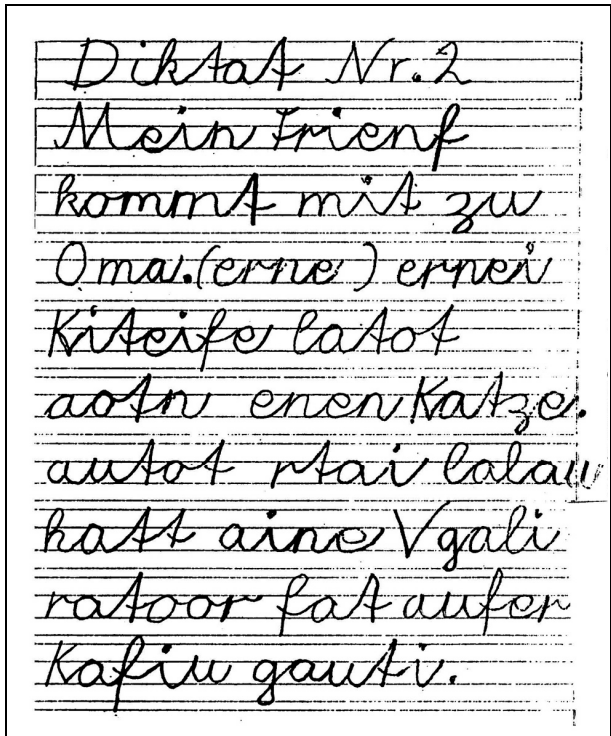 Diktat Nr. 2
Mein Frienf
kommt mit zu
Oma. (erne) ernei
Kiteife latot
aotn enen Katze.
autot rtai lalau
hatt aine Vgali
ratoor fat aufer
Kafiu gauti.